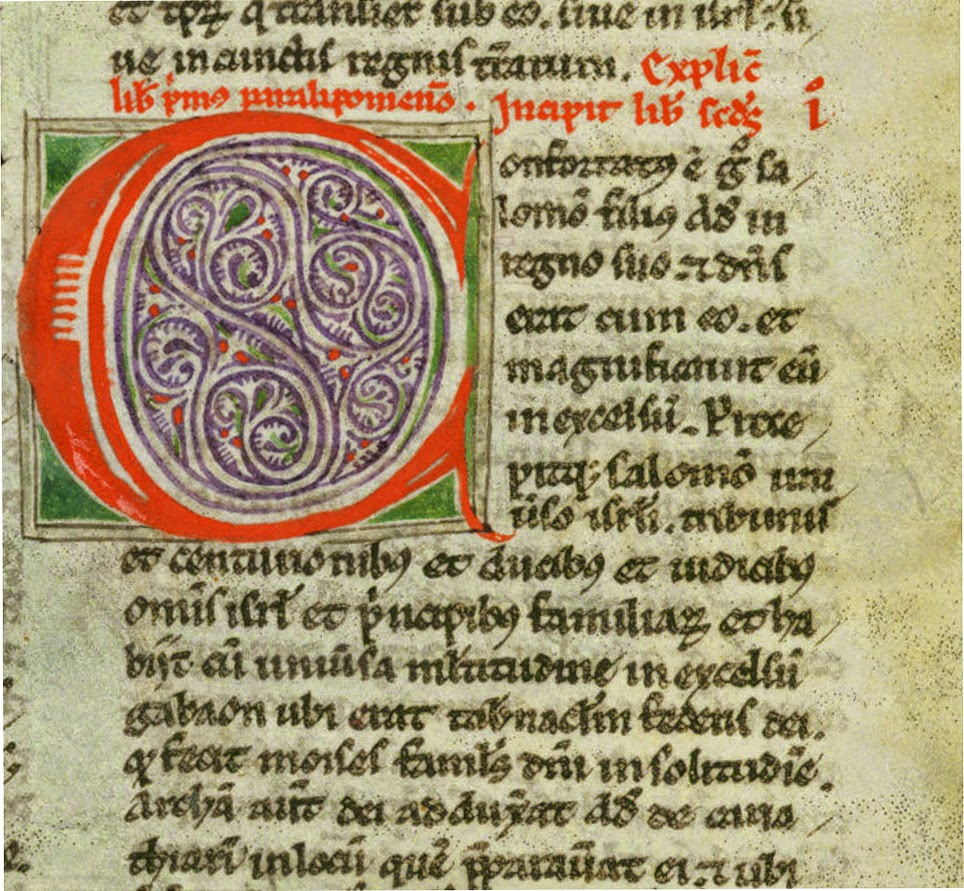 et tp̄rꝝ q̄ transier̄t sub eo. siue in isrł. si
ue in cunctis regnis t̄rarum. Explic̄
lib̄ p̍mꝰ paralipomenō. Incipit lib̄ scd̄s i
Confortatꝰ ē g̊ sa
lomō filiꝰ dd̄ in
regno suo ⁊ dn̄s
erat cum eo. et
magnificauit eū
in excelsū. Prece
pitqꝫ salomō uni
ūso isrłi. tribunis
et centurionibꝰ et ducibꝰ et iudicibꝰ
om̄is isrł et p̍ncipibꝰ familiaꝝ et ha
bijt cū uniūsa ml̄titudine in excelsū
gabaon ubi erat tab̄nacl̄m federis dei.
qđ fecit moises famul̄s dn̄i in solitudīe.
Archā aūt dei adduxat dd̄ de caria
thiarī in locū quē p̄paraūat ei ⁊ ubi